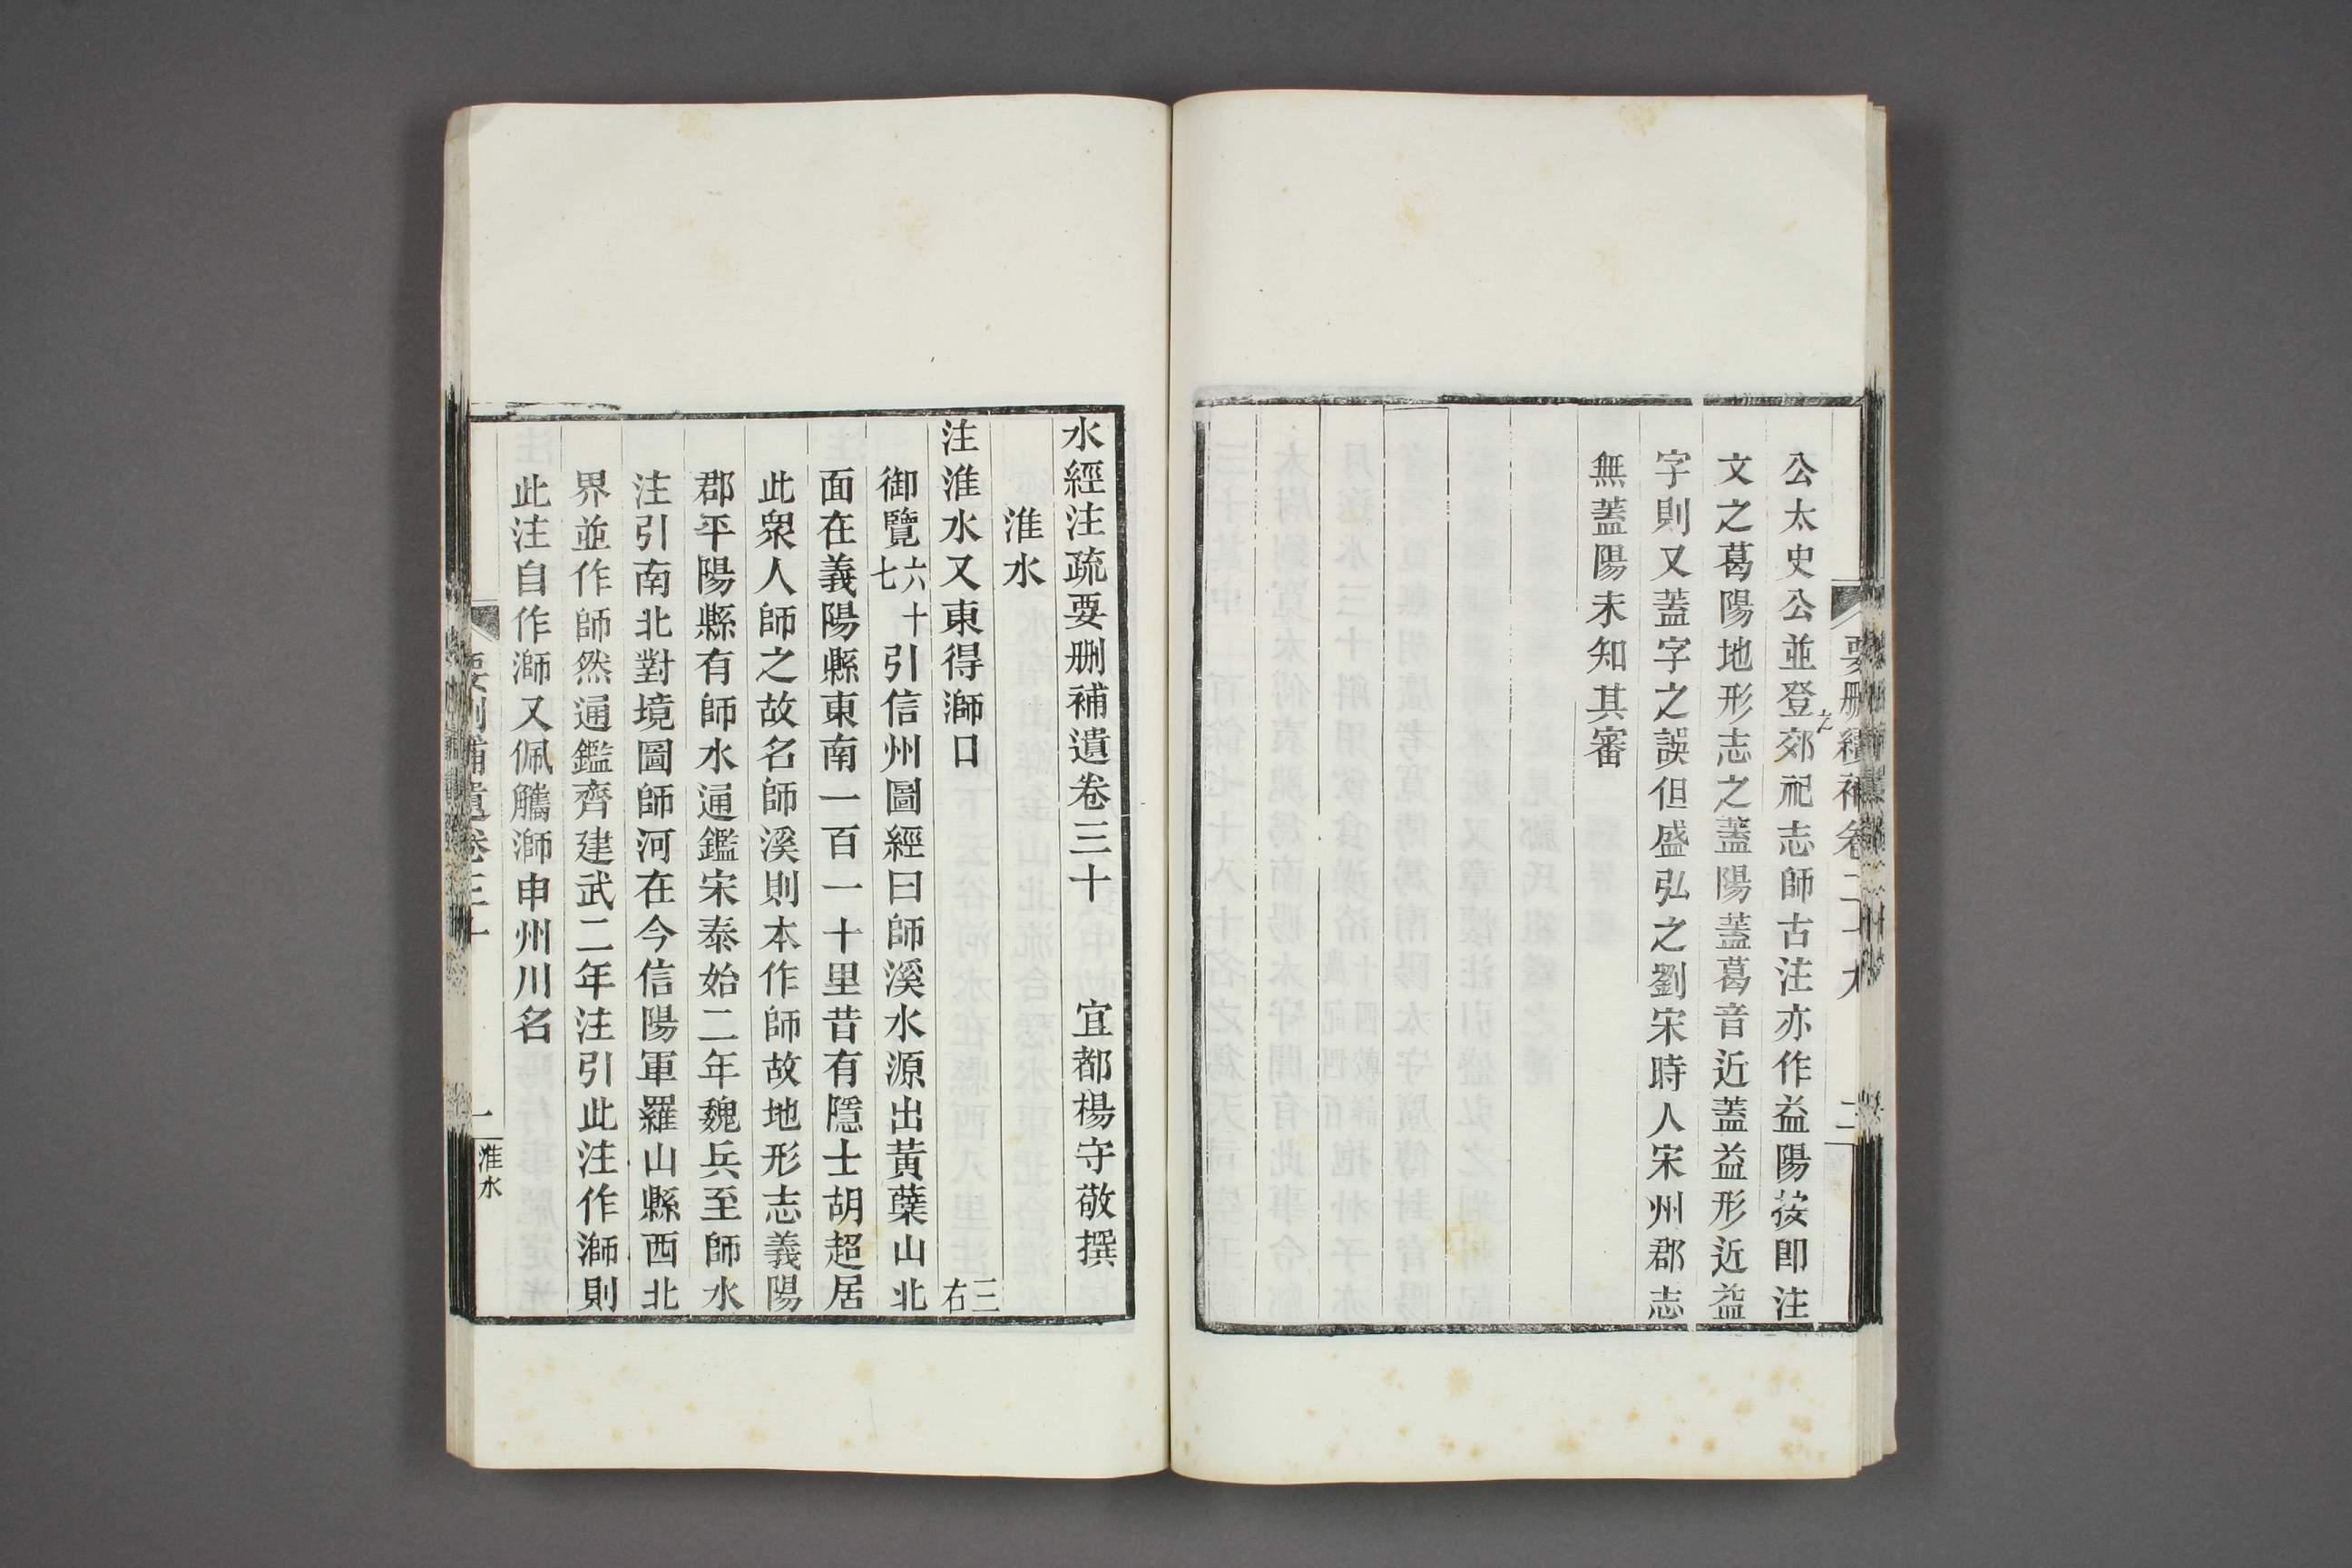 公太史公並登之郊祀志師古注亦作益陽按即注
文之葛陽地形志之蓋陽蓋葛音近蓋益形近益
字則又蓋字之誤但盛弘之劉宋時人宋州郡志
無蓋陽未知其審
水經注疏要刪補遺卷三十 宜都楊守敬撰
淮水
注淮水又東得溮口 三右
御覽六十七引信州圖經曰師溪水源出黃蘗山北
面在義陽縣東南一百一十里昔有隱士胡超居
此衆人師之故名師溪則本作師故地形志義陽
郡平陽縣有師水通鑑宋泰始二年魏兵至師水
注引南北對境圖師河在今信陽軍羅山縣西北
界並作師然通鑑齊建武二年注引此注作溮則
此注自作溮又佩觽溮申州川名
要刪補遺卷三十 一 淮水